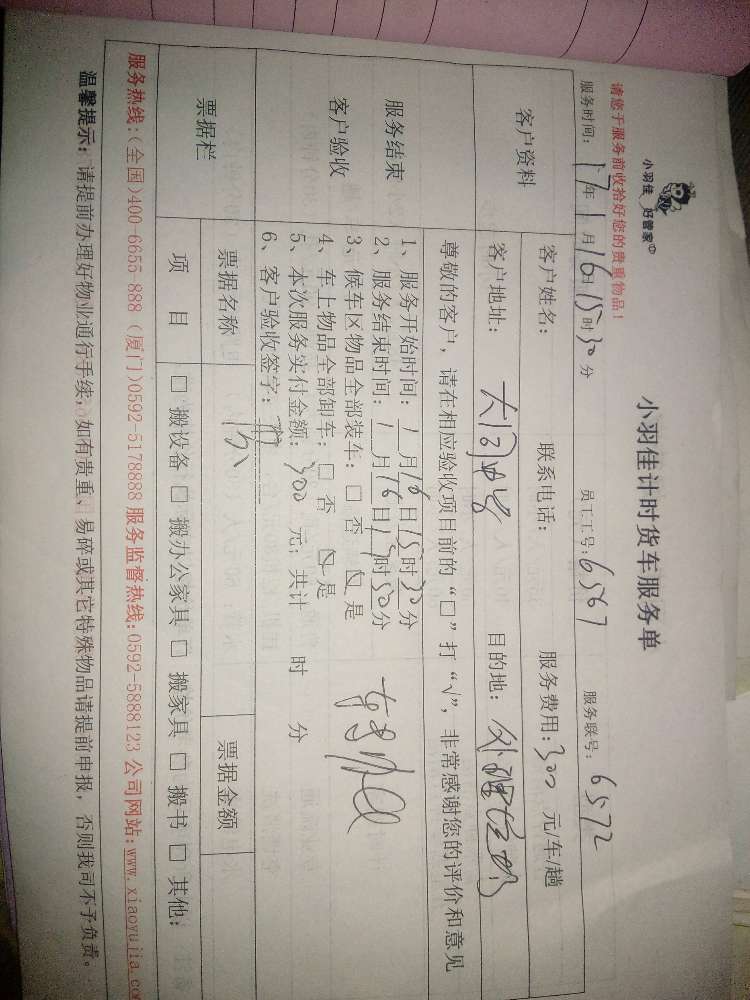 小羽佳 好管家
小羽佳计时货车服务单
请您于服务前收拾好您的贵重物品！
服务时间：17年1月16日15时30分 员工工号：6567 服务联号：6572
客户资料
客户姓名： 联系电话： 服务费用：300 元/车/趟
客户地址： 目的地：
尊敬的客户，请在相应验收项目前的“□”打“√”，非常感谢您的评价和意见
服务结束
客户验收
1、服务开始时间：1月16日15时30分
2、服务结束时间：1月16日17时50分
3、候车区物品全部装车：□ 否 ☑ 是
4、车上物品全部卸车：□ 否 ☑ 是
5、本次服务实付金额：300 元；共计 时 分
6、客户验收签字：
票据栏
票据名称 票据金额
项 目 □ 搬设备 □ 搬办公家具 □ 搬家具 □ 搬书 □ 其他：
服务热线：(全国)400-6655 888 (厦门)0592-5178888 服务监督热线：0592-5888123 公司网站：www.xiaoyujia.co
温馨提示：请提前办理好物业通行手续；如有贵重、易碎或其它特殊物品请提前申报，否则我司不予负责。